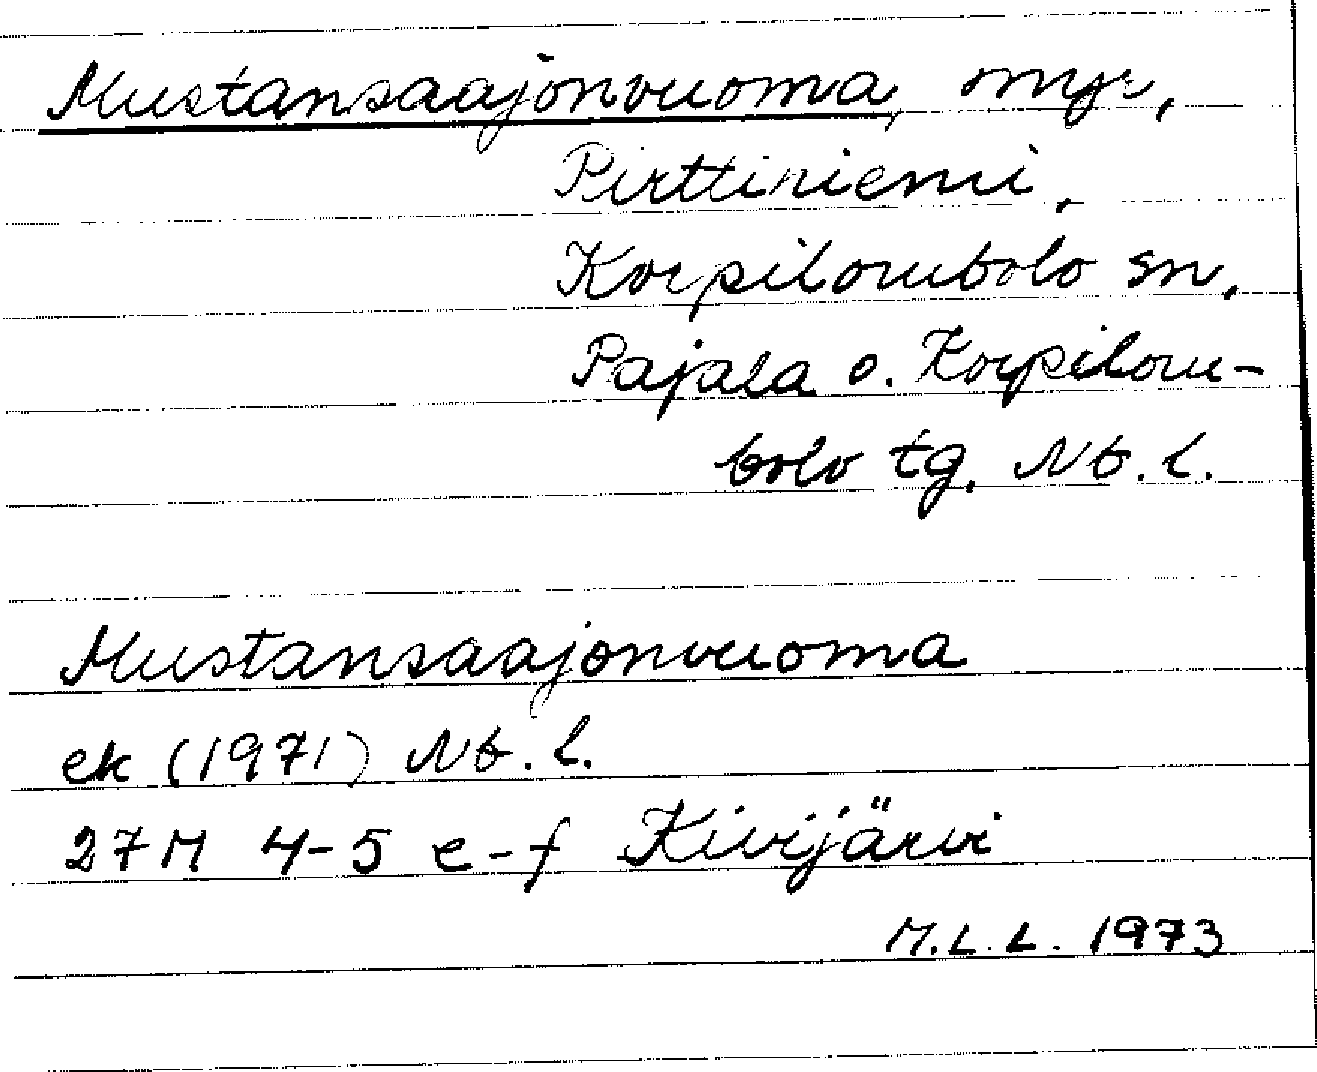 Mustansaajonvuoma, myr,
Pirttiniemi,
Korpilombolo sn.
Pajala o. Korpilom-
bolo tg. Nb. l.
Mustansaajonvuoma
ek (1971) Nb. l.
27M 4-5 e-f Kivijärvi
M.L.L. 1973